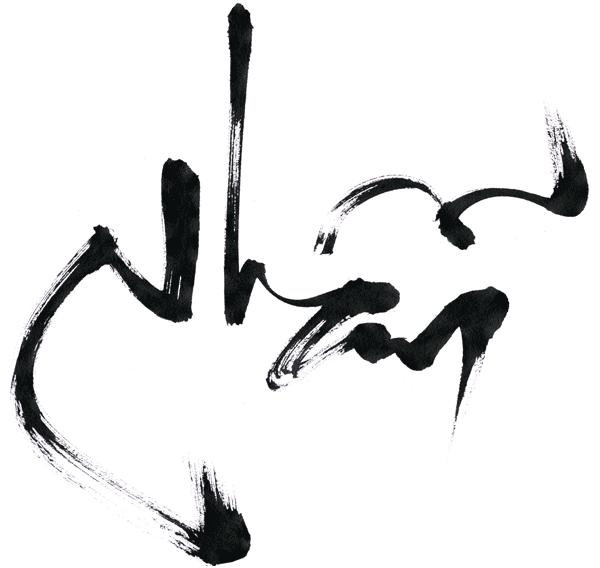 Nhẫn